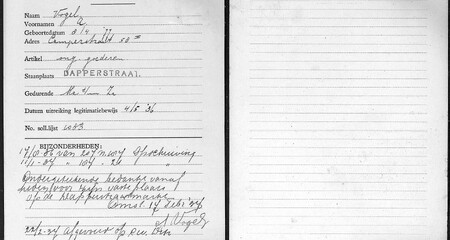 Naam Vogel
Voornamen A.
Geboortedatum 3/4 '77
Adres Camperstraat 50
Artikel ong. goederen
Staanplaats DAPPERSTRAAT.
Gedurende Ma t/m Za
Datum uitreiking legitimatiebewijs 4/5 '36
No. soll.lijst 1063
BIJZONDERHEDEN:
17/10-36 van 207 n. 107 Afschrijving
11/1-37 " 107 " 24 "
Ondergeteekende bedankt vanaf
heden voor zijn vaste plaats
op de Dappermarkt
Amst. 17 Febr '37
A Vogel
22/2-37 Afgevoerd op